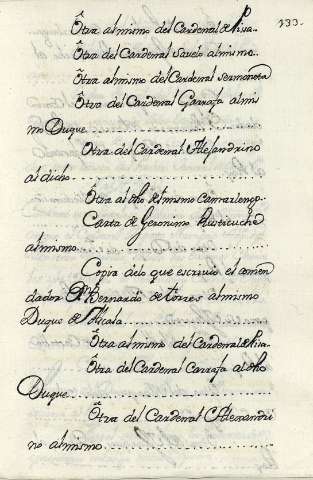 133.
Otra al mismo del Cardenal de Pisa..
Otra del Cardenal Savelo al mismo..
Otra al mismo del Cardenal Sermoneta
Otra del Cardenal Garrafa al mis
mo Duque
Otra del Cardenal Alesandrino
al dicho
Otra al dho del mismo Camarlengo.
Carta de Geronimo Rusticuche
al mismo
Copia de lo que escrivio el comen
dador Bernardo de torres al mismo
Duque de Alcala
Otra al mismo del Cardenal de Pisa.
Otra del Cardenal Carrafa al dho
Duque
Otra del Cardenal Alexandri
no al mismo